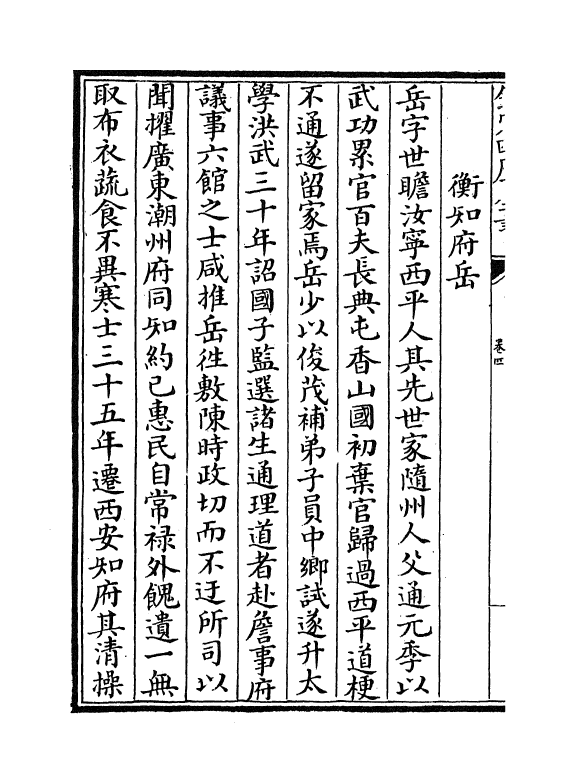 卷四
衡知府岳
岳字世瞻汝寧西平人其先世家隨州人父通元季以
武功累官百夫長典屯香山國初棄官歸過西平道梗
不通遂留家焉岳少以俊茂補弟子員中鄉試遂升太
學洪武三十年詔國子監選諸生通理道者赴詹事府
議事六館之士咸推岳徃敷陳時政切而不迂所司以
聞擢廣東潮州府同知約已惠民自常禄外餽遺一無
取布衣蔬食不異寒士三十五年遷西安知府其清操